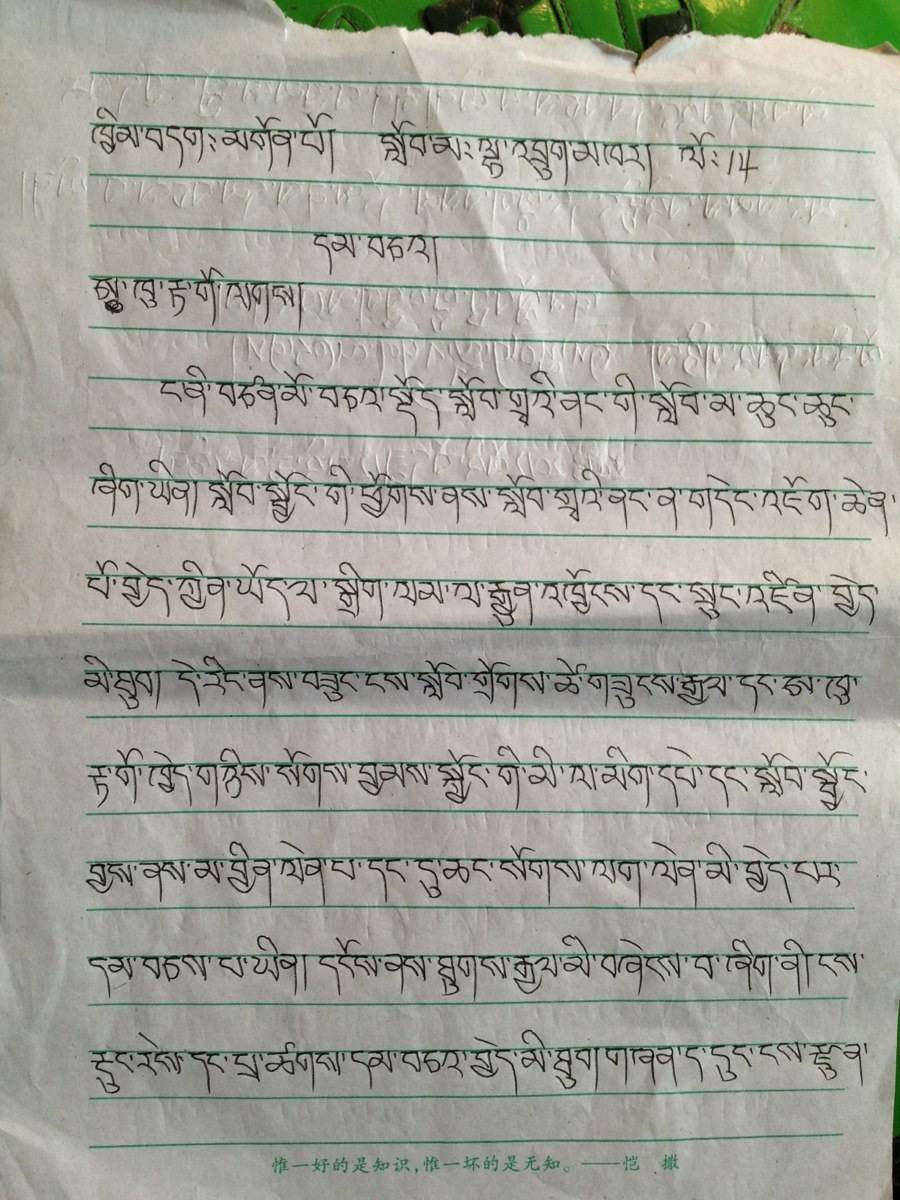 ཁྱིམ་བདག: མགོན་པོ། སློབ་མ: ལྷ་འབྲུག་མཁར། ལོ: 14
དམ་བཅའ།
ཨ་ཁུ་རྟ་གོ་ལགས།
ངའི་བཙན་མོ་བཅའ་སྡོད་སློབ་གྲྭའི་ནང་གི་སློབ་མ་ཆུང་ཆུང་
ཞིག་ཡིན། སློབ་སྦྱོང་གི་ཕྱོགས་ནས་སློབ་གྲྭའི་ནང་ན་གདེང་འཇོག་ཆེན་
པོ་བྱེད་ཀྱིན་ཡོད་ལ་སྒྲིག་ལམ་ལ་རྒྱུན་འཁྱོངས་དང་སྲུང་འཛིན་བྱེད་
མི་ཐུབ། དེ་རིང་ནས་བཟུང་ངས་སློབ་གྲོགས་ཚེ་གཟུངས་རྒྱལ་དང་ཨ་ཁུ་
རྟ་གོ་ཁྱེད་གཉིས་སོགས་བྱམས་སྐྱོང་གི་མི་ལ་མིག་དཔེ་དང་སློབ་སྦྱོང་
བྱས་ནས་མ་བྱིན་ལེན་པ་དང་དུ་ཆང་སོགས་ལག་ལེན་མི་བྱེད་པར་
དམ་བཅས་པ་ཡིན། དངོས་ནས་ཐུགས་རྒྱལ་མི་བཞེས་པ་ཞིག་ནི། ངས་
རྡུང་རེས་དང་ཕྲ་ཚགས་དམ་བཅའ་བྱེད་མི་ཐུབ། གཞན་ད་དུང་ངས་རྫུན་
惟一好的是知识,惟一坏的是无知。——恺 撒